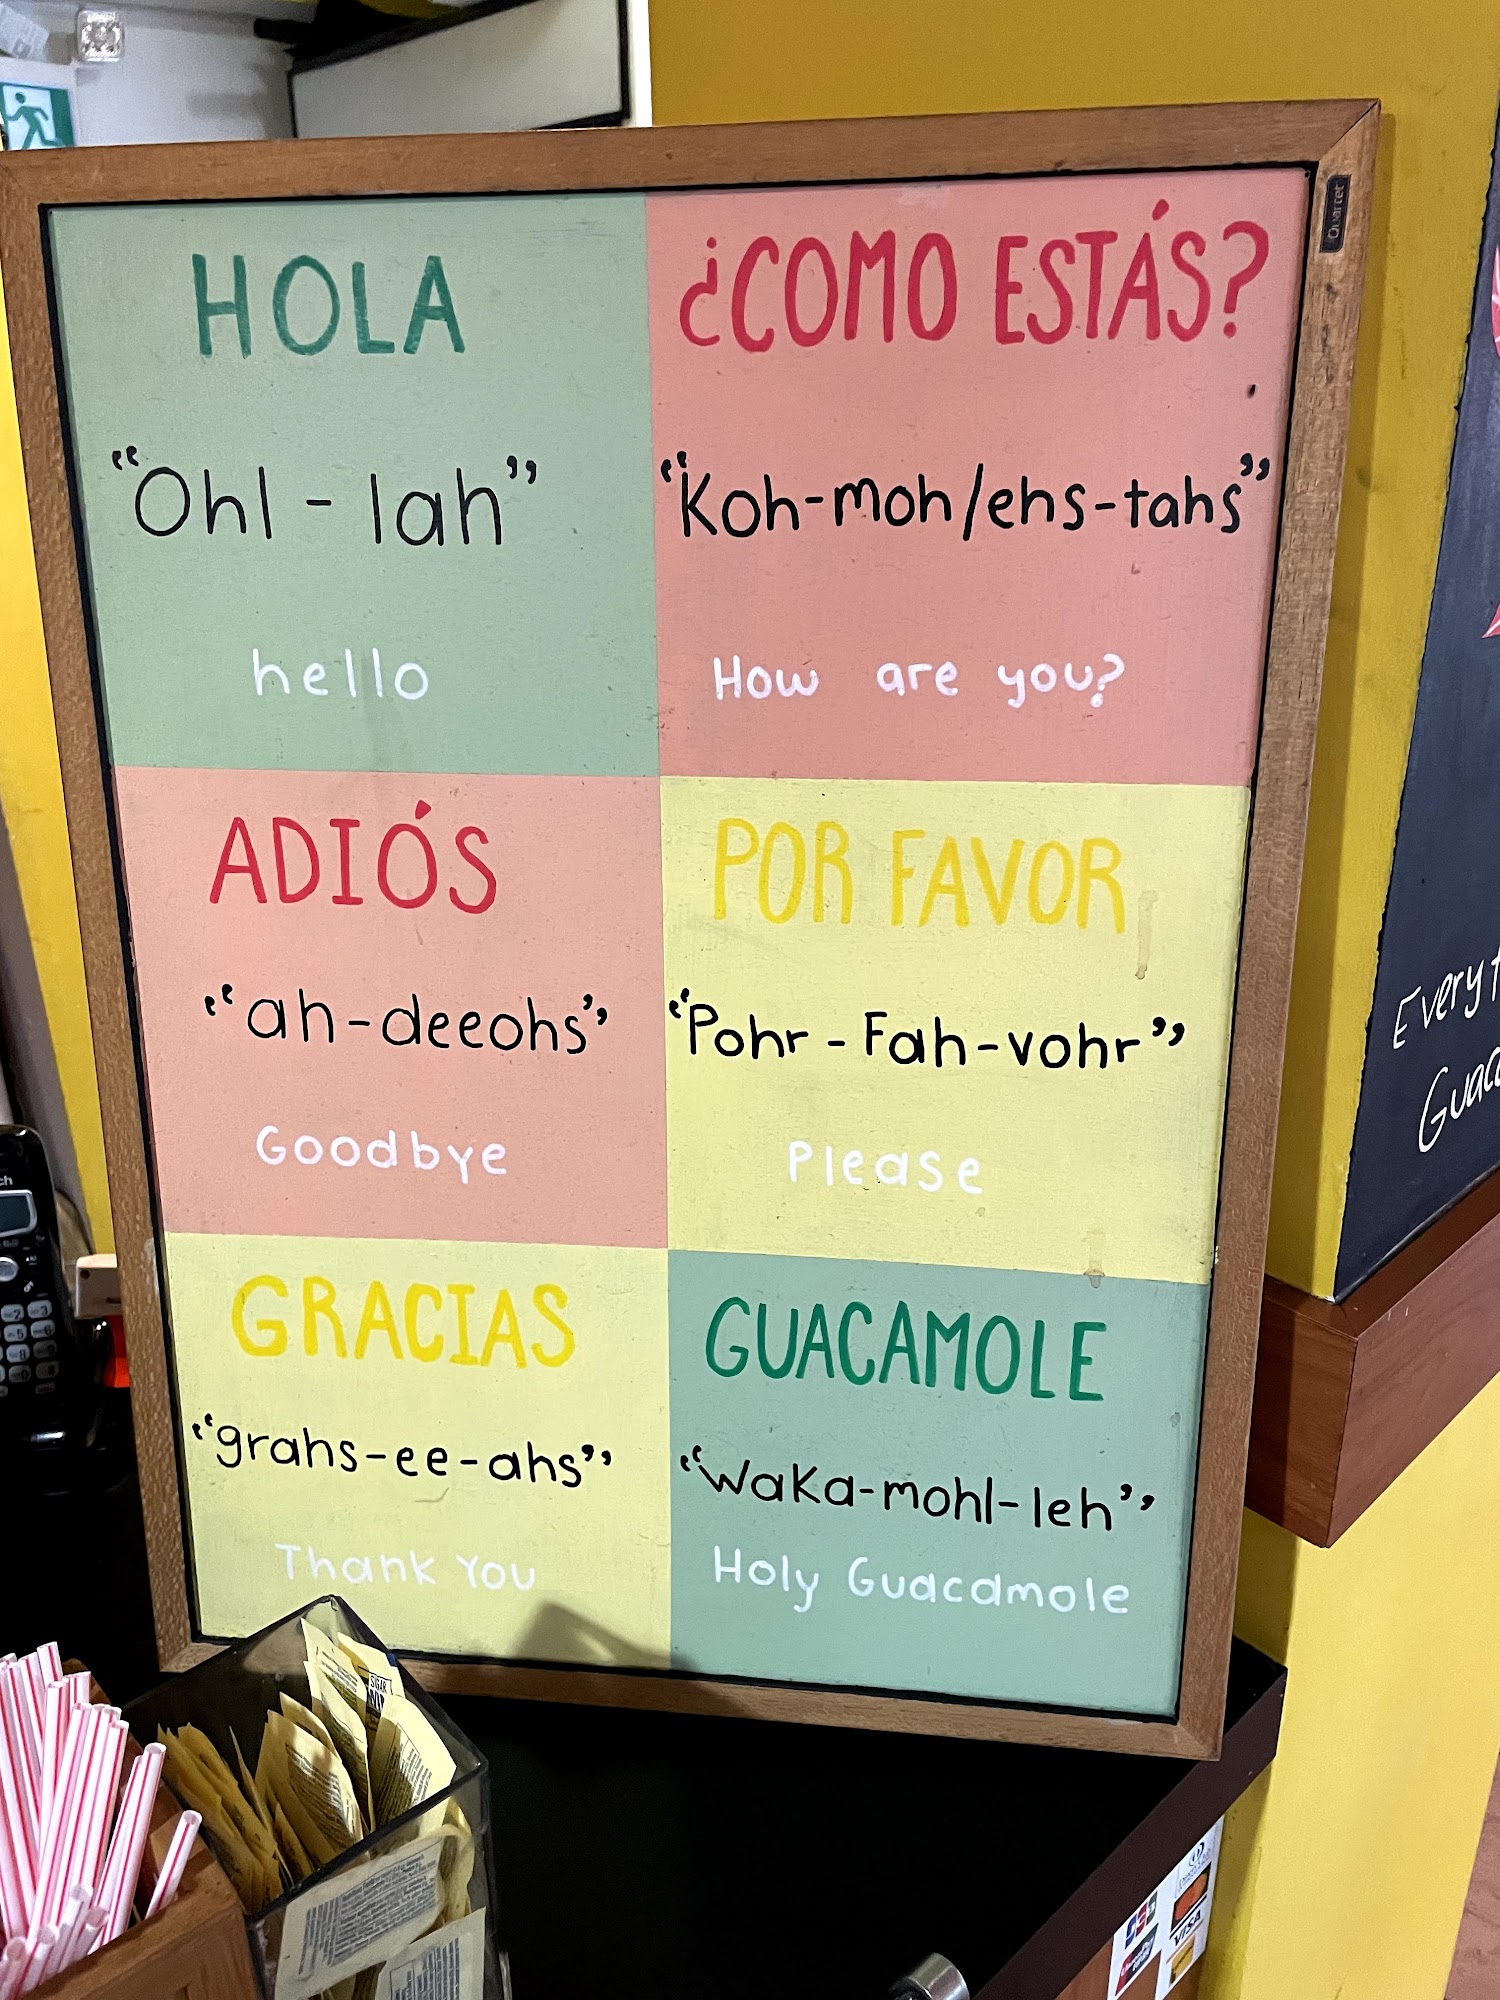 HOLA
“Ohl-lah”
hello
¿COMO ESTÁS?
“Koh-moh/ehs-tahs”
How are you?
ADIÓS
“ah-deeohs”
Goodbye
POR FAVOR
“Pohr-Fah-vohr”
Please
GRACIAS
“grahs-ee-ahs”
Thank You
GUACAMOLE
“Waka-mohl-leh”
Holy Guacamole
Quartet
SUGAR
VISA